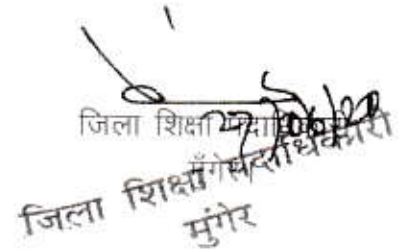 जिला शिक्षा पदाधिकारी
मुंगेर
27/06/20
जिला शिक्षा पदाधिकारी
मुंगेर